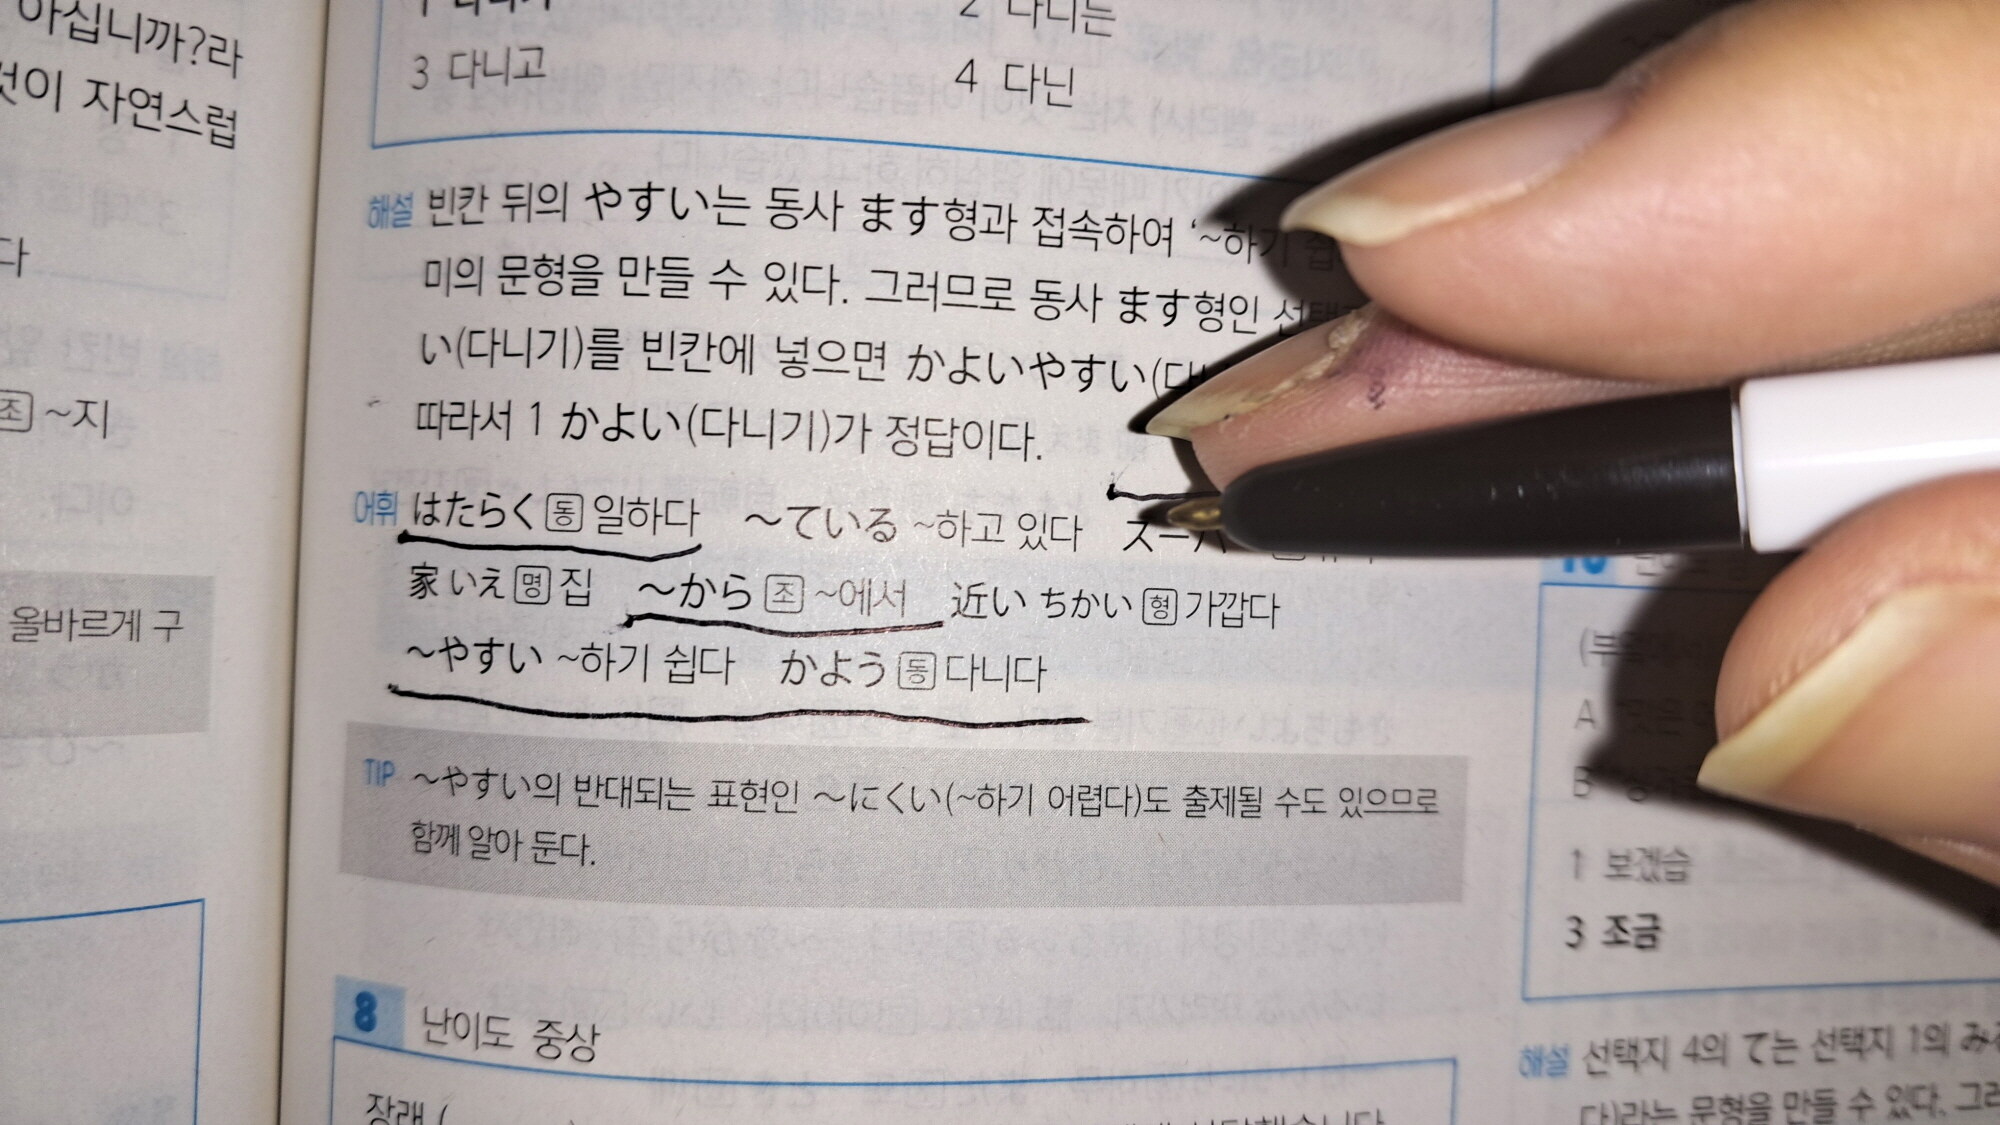 아십니까?라
것이 자연스럽
다
조 ~지
올바르게 구
2 다니는
3 다니고
4 다닌
해설 빈칸 뒤의 やすい는 동사 ます형과 접속하여 '~하기
미의 문형을 만들 수 있다. 그러므로 동사 ます형인
い(다니기)를 빈칸에 넣으면 かよいやすい(
따라서 1 かよい(다니기)가 정답이다.
어휘 はたらく 동 일하다 ～ている ~하고 있다 スーパ
家 いえ 명 집 ～から 조 ~에서 近い ちかい 형 가깝다
～やすい ~하기 쉽다 かよう 동 다니다
TIP ～やすい의 반대되는 표현인 ～にくい(~하기 어렵다)도 출제될 수도 있으므로
함께 알아 둔다.
8 난이도 중상
장래 (
A
B
1 보겠습
3 조금
해설 선택지 4의 て는 선택지 1의 み
다)라는 문형을 만들 수 있다. 그러